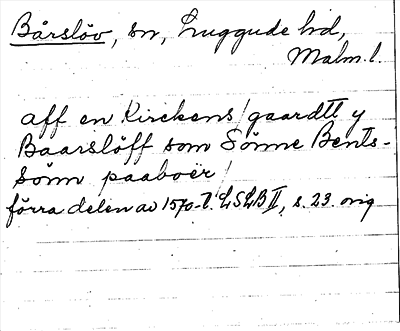 Bårslöv, sn, Luggude hd,
Malm. l.
aff en Kirckens / gaardtt y
Baarslöff som Sönne Bents-
sönn paaboer /
förra delen av 1570-t. LSLB II, s. 23. orig